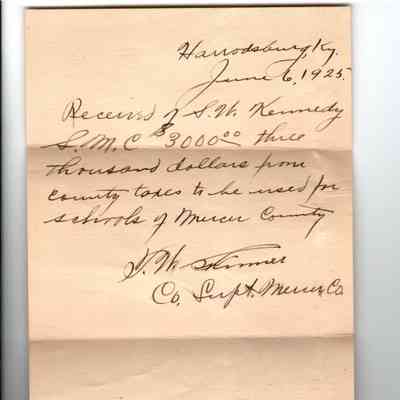 Harrodsburg, Ky.
June 6, 1925
Received of S. W. Kennedy
S. M. C $3000.00 three
thousand dollars from
county taxes to be used for
schools of Mercer County
W. Skinner
Co. Supt. Mercer Co.